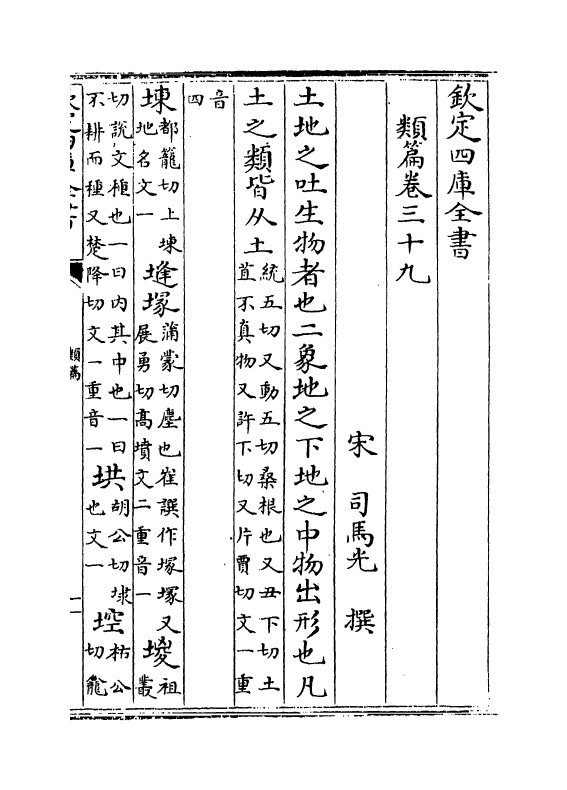 欽定四庫全書
類篇卷三十九
宋 司馬光 撰
土地之吐生物者也二象地之下地之中物出形也凡
土之類皆从土統五切又動五切桑根也又丑下切土苴不真物又許下切又片賈切文一重
音四
埬都籠切上埬地名文一 塳塚蒲蒙切塵也崔譔作塚塚又展勇切高墳文二重音一 堫祖叢
切說文種也一曰内其中也一曰不耕而種又楚降切文一重音一 垬胡公切埭也文一 埪枯公切龕
類篇